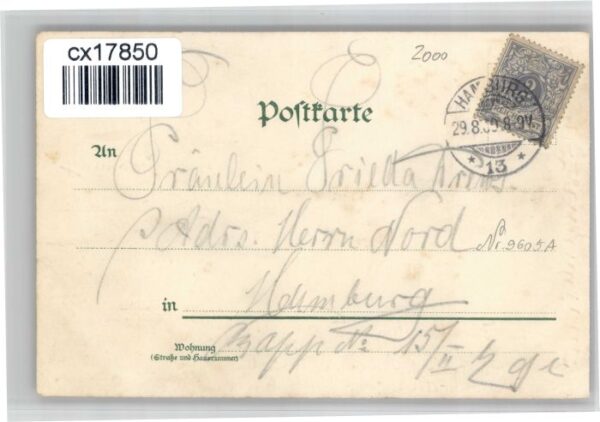 cx17850
2000
Postkarte
HAMBURG
29.8. 8-9V.
* 13 *
An
Fräulein Frieda
p Adrs. Herrn Nord
Nr 9605A
in
Hamburg
15/II
Wohnung
(Straße und Hausnummer)